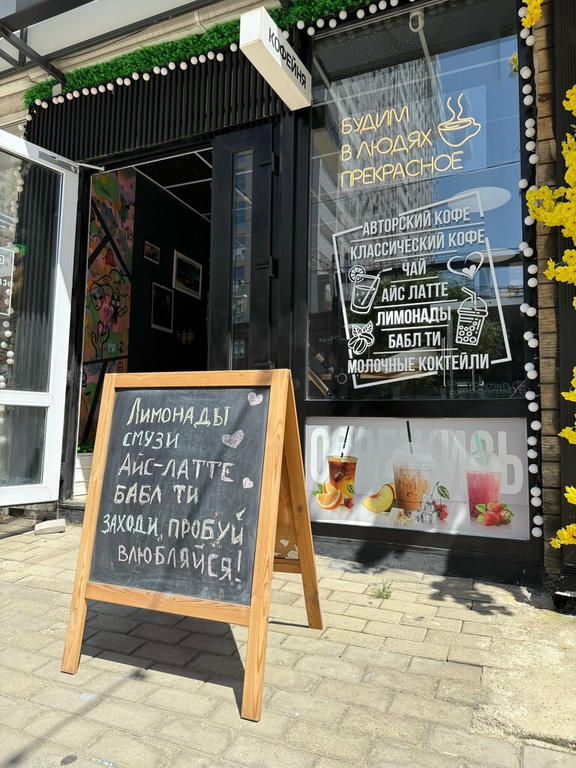 КОФЕЙНЯ
БУДИМ
В ЛЮДЯХ
ПРЕКРАСНОЕ
АВТОРСКИЙ КОФЕ
КЛАССИЧЕСКИЙ КОФЕ
ЧАЙ
АЙС ЛАТТЕ
ЛИМОНАДЫ
БАБЛ ТИ
МОЛОЧНЫЕ КОКТЕЙЛИ
ЛИМОНАДЫ
СМУЗИ
АЙС-ЛАТТЕ
БАБЛ ТИ
ЗАХОДИ, ПРОБУЙ
ВЛЮБЛЯЙСЯ!